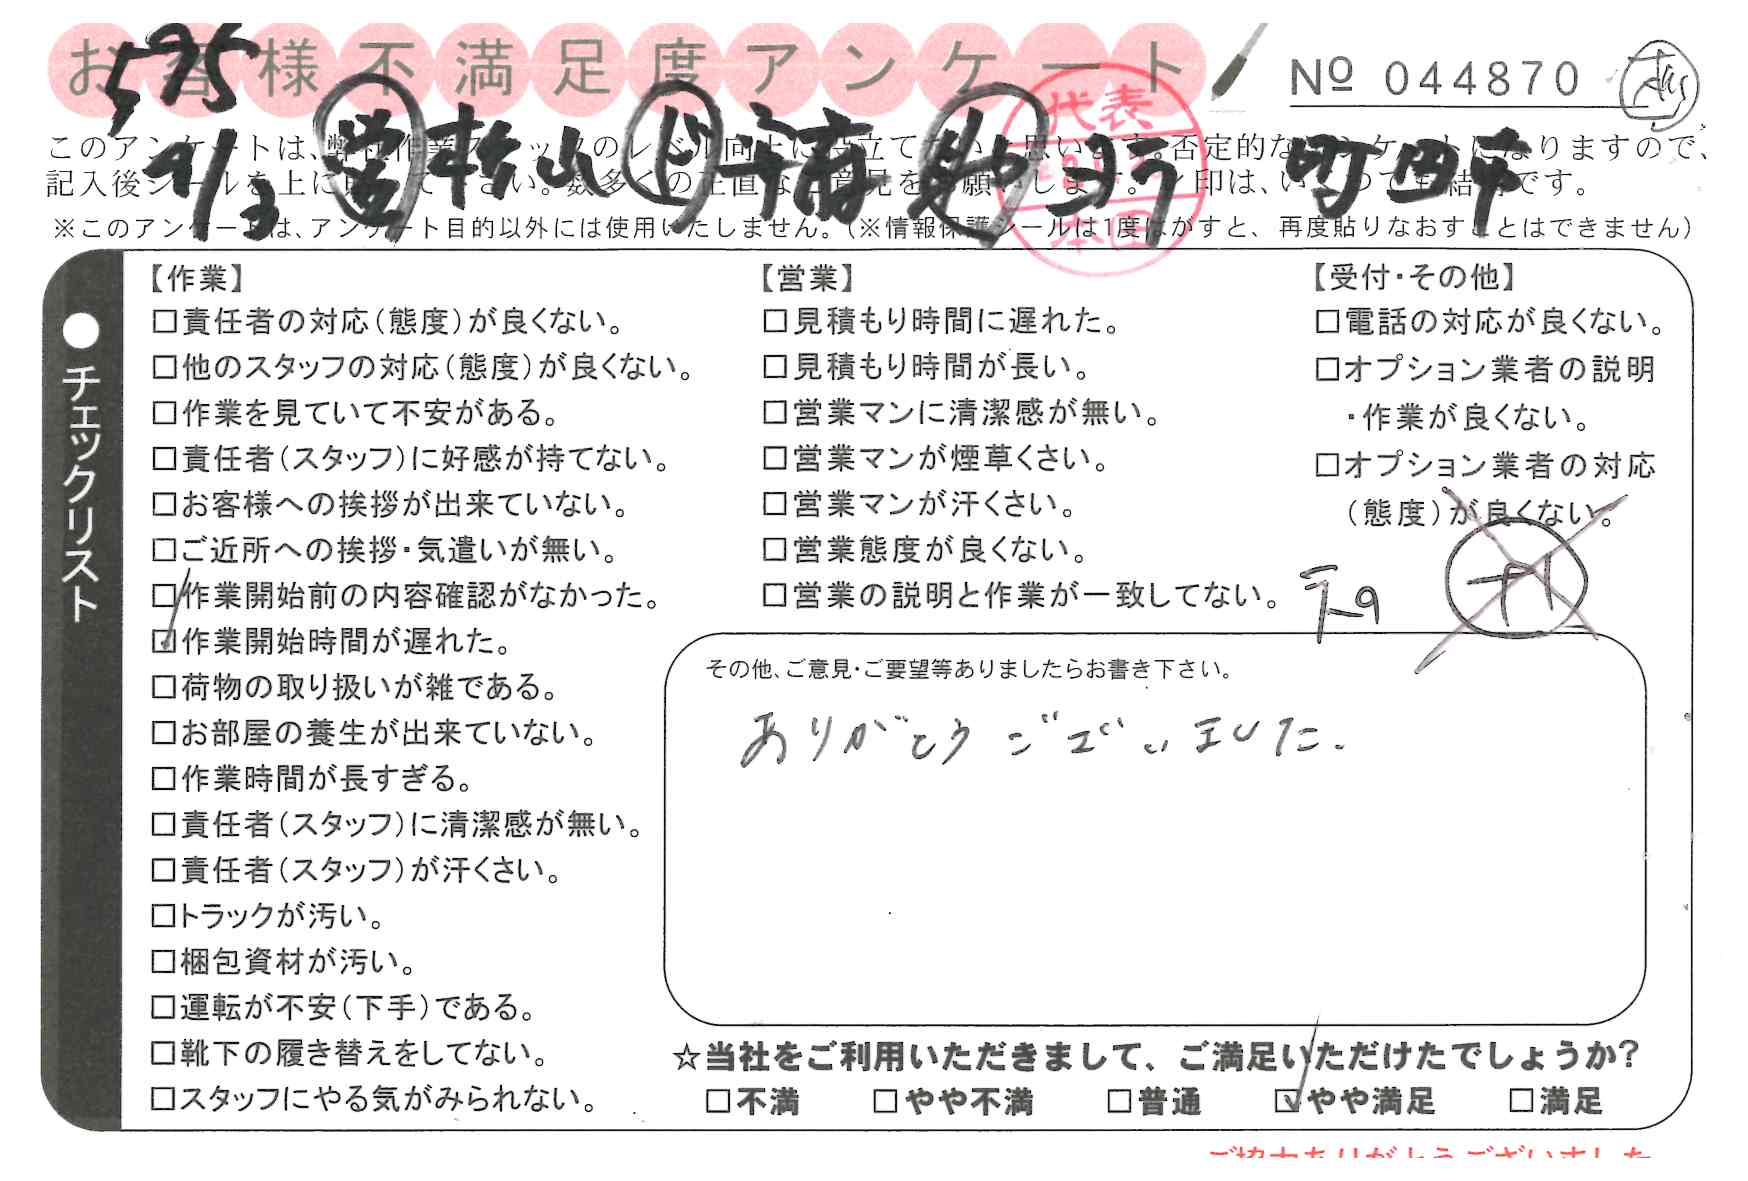 お客様不満足度アンケート
№ 044870
595
このアンケートは、弊社作業スタッフのレベル向上に役立てたいと思います。否定的なアンケートになりますので、
記入後シールを上に貼って下さい。数多くの正直なご意見をお願いします。
※このアンケートは、アンケート目的以外には使用いたしません。(※情報保護シールは1度はがすと、再度貼りなおすことはできません)
9/3 営 松山
町田市
代表
本田
●チェックリスト
【作業】
□責任者の対応(態度)が良くない。
□他のスタッフの対応(態度)が良くない。
□作業を見ていて不安がある。
□責任者(スタッフ)に好感が持てない。
□お客様への挨拶が出来ていない。
□ご近所への挨拶・気遣いが無い。
□作業開始前の内容確認がなかった。
☑作業開始時間が遅れた。
□荷物の取り扱いが雑である。
□お部屋の養生が出来ていない。
□作業時間が長すぎる。
□責任者(スタッフ)に清潔感が無い。
□責任者(スタッフ)が汗くさい。
□トラックが汚い。
□梱包資材が汚い。
□運転が不安(下手)である。
□靴下の履き替えをしてない。
□スタッフにやる気がみられない。
【営業】
□見積もり時間に遅れた。
□見積もり時間が長い。
□営業マンに清潔感が無い。
□営業マンが煙草くさい。
□営業マンが汗くさい。
□営業態度が良くない。
□営業の説明と作業が一致してない。
【受付・その他】
□電話の対応が良くない。
□オプション業者の説明
・作業が良くない。
□オプション業者の対応
(態度)が良くない。
その他、ご意見・ご要望等ありましたらお書き下さい。
ありがとうございました。
☆当社をご利用いただきまして、ご満足いただけたでしょうか?
□不満 □やや不満 □普通 ☑やや満足 □満足
ご協力ありがとうございました